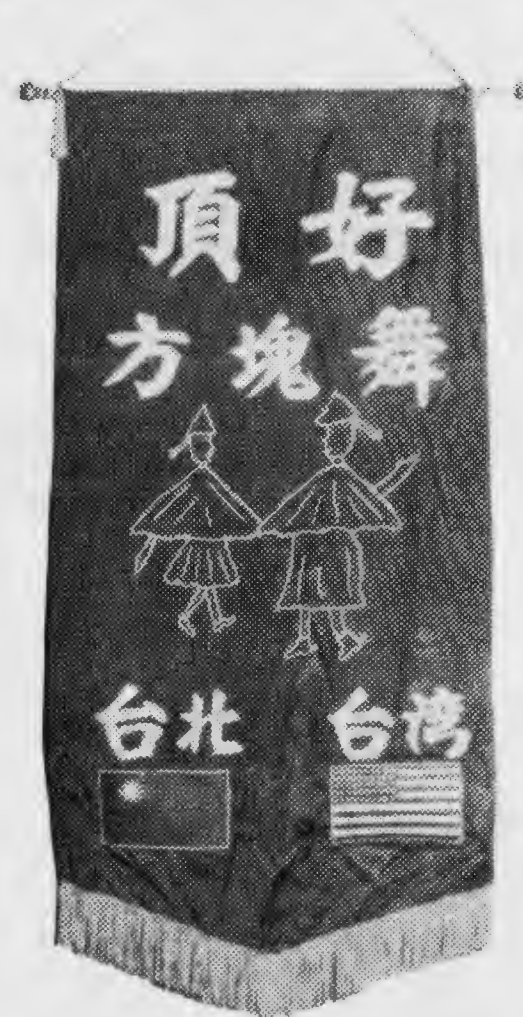 頂好
方塊舞
台北 台湾